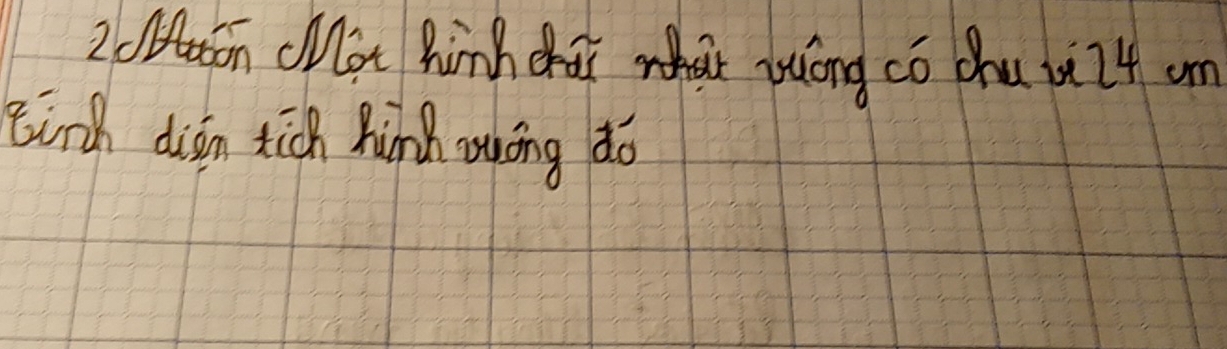 2 Muốn Một hình chữ nhật vuông có chu vi 24 cm
Tính diện tích hình vuông đó